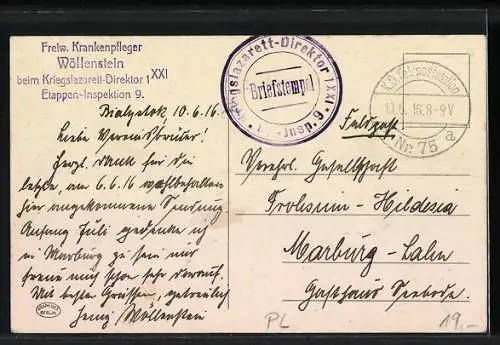 Freiw. Krankenpfleger
Wöllenstein
beim Kriegslazarett-Direktor 1 XXI
Etappen-Inspektion 9.
Kriegslazarett-Direktor XXI
Briefstempel
Insp. 9
K.D. Feldpoststation
10.6.16.8-9V
Nr. 75 a
Bialystok, 10.6.16.
Feldpost
Liebe Vereinsbrüder!
Herzl. Dank für die
letzte, am 6.6.16 wohlbehalten
hier angekommene Sendung
Anfang Juli gedenke ich
in Marburg zu sein und
freue mich schon sehr darauf.
Mit besten Grüssen, getreulich
Heinz Wöllenstein
Verehrl. Gesellschaft
Hildesia
Marburg-Lahn
Gasthaus Seebode.
PL
19,-